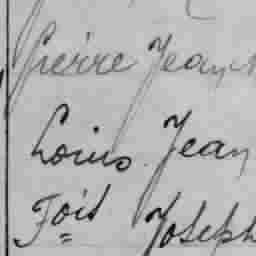 Pierre Jean
Louis Jean
Fois Joseph